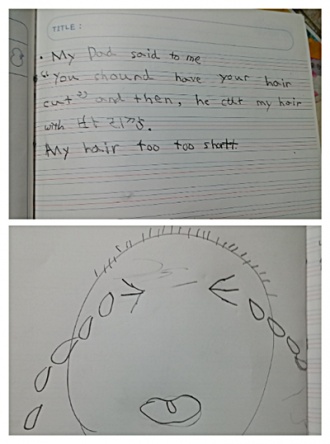 TITLE :
• My Dad said to me
"You shound have your hair
cut" and then, he cut my hair
with 바리깡.
My hair too too short